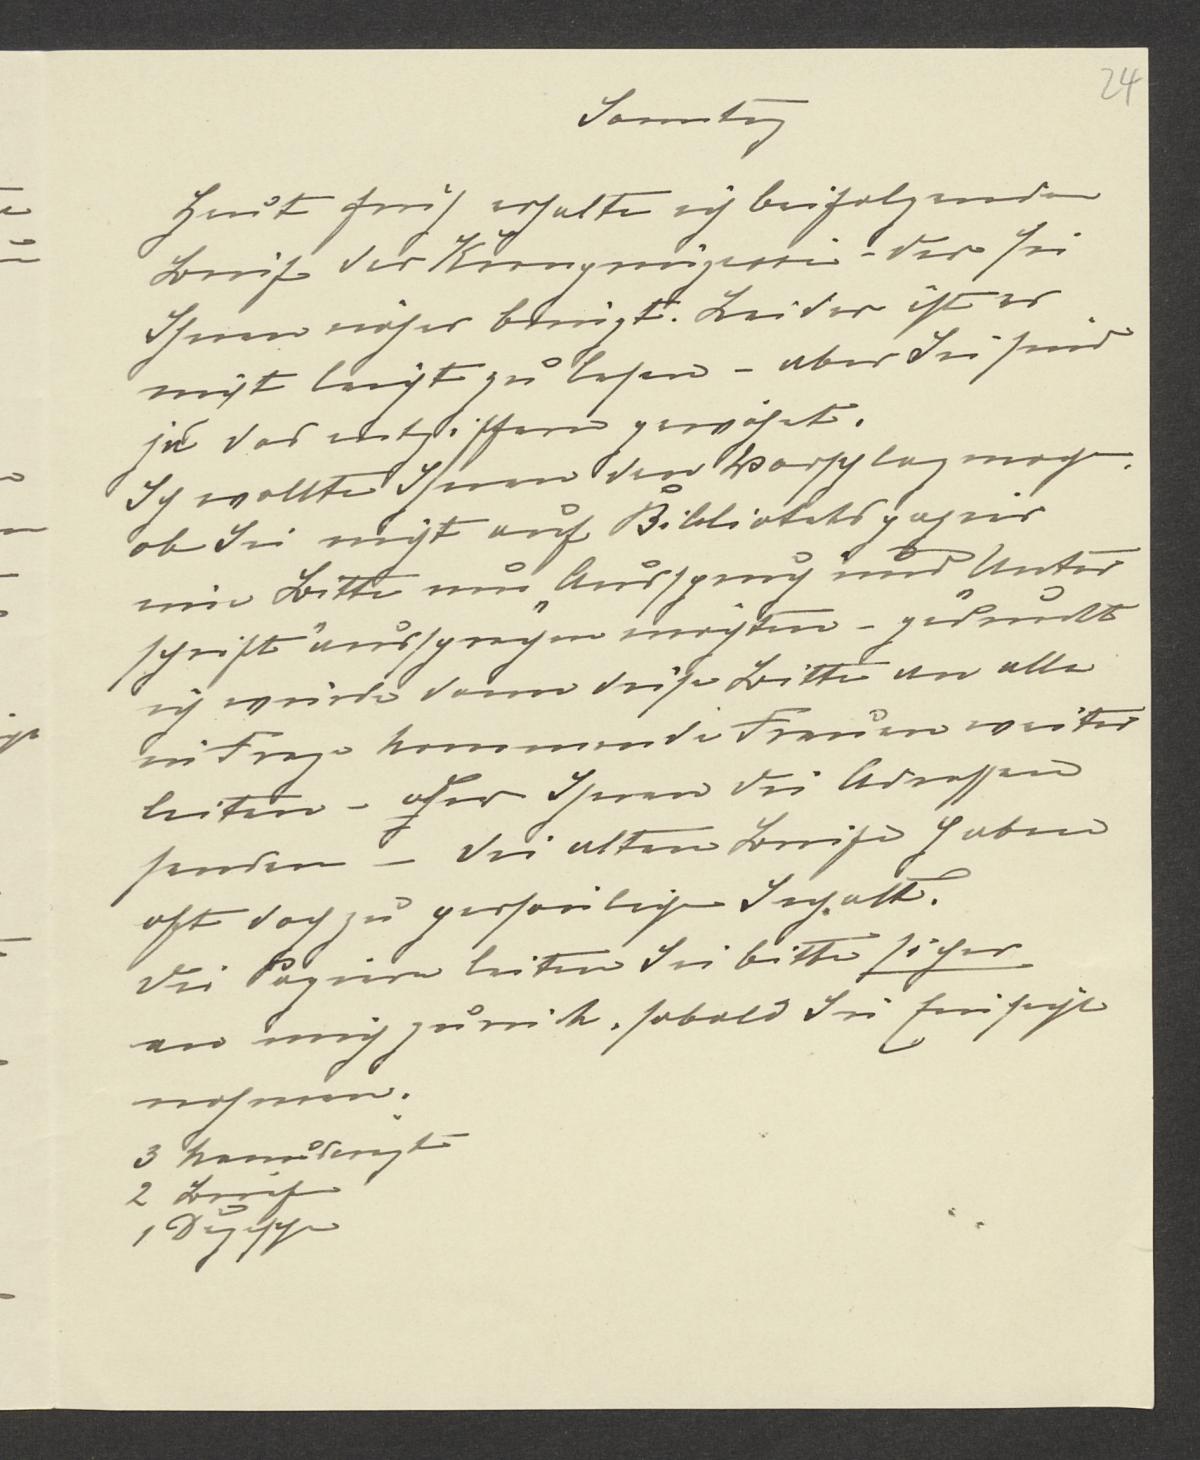 24
Sonntag
Heut früh erhalte ich beifolgenden
Brief der Kronprinzessin - der sie
Ihnen näher bringt. Leider ist er
nicht leicht zu lesen - aber Sie sind
ja das entziffern gewöhnt.
Ich wollte Ihnen den Vorschlag machen.
ob Sie nicht auf Bibliotekspapier
eine Bitte um „Ausspruch und Unter
schrift" aussprechen möchten - gedruckt
ich würde dann diese Bitte an alle
in Frage kommende Frauen weiter
leiten - oder Ihnen die Adressen
senden - die alten Briefe haben
oft doch zu persönlichen Inhalt.
Die Papiere leiten Sie bitte sicher
an mich zurück, sobald Sie Einsicht
nahmen.
3
2 Briefe
1 Depesche